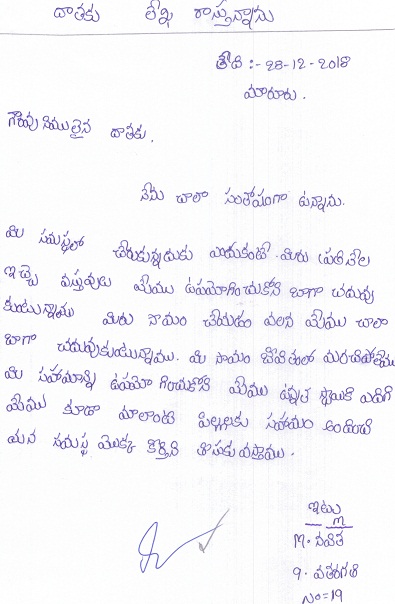 దాతకు లేఖ రాస్తున్నాను
తేది :- 28-12-2018
మారూరు.
గౌరవనియులైన దాతకు.
నేను చాలా సంతోషంగా ఉన్నాను.
మి సమస్థలో చేరుకున్నదుకు ఎందుకంటే. మిరు ప్రతి నెల
ఇచ్చె వస్తువులు మేము ఉపయోగించుకోని బాగా చదువు
కుంటున్నాము మిరు సాయం చేయడం వలన మేము చాలా
బాగా చదువుకుంటున్నాము. మి సాయం జీవితంలో మరచిపోలేము
మి సహయాన్ని ఉపయోగించుకోని మేము ఉన్నత స్థాయికి ఎదిగి
మేము కూడా మాలాంటి పిల్లలకు సహయం అందించి
మన సమస్థ యొక్క కీర్తిని తీసుకువస్తాము.
ఇటు
M. నవిత
9. వతరగతి
No=19